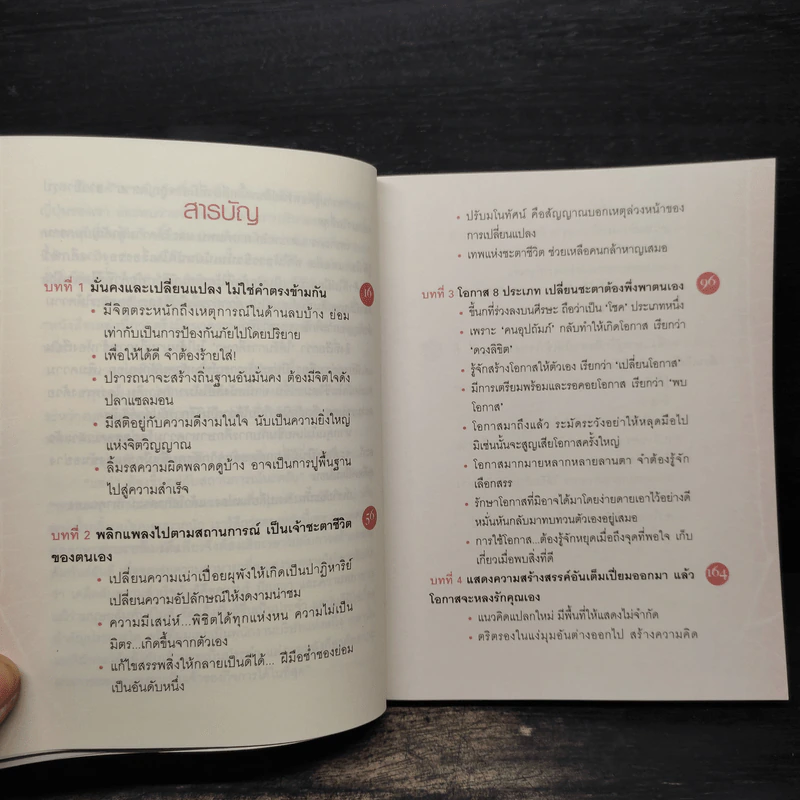 สารบัญ
บทที่ 1 มั่นคงและเปลี่ยนแปลง ไม่ใช่คำตรงข้ามกัน 16
• มีจิตตระหนักถึงเหตุการณ์ในด้านลบบ้าง ย่อม
เท่ากับเป็นการป้องกันภัยไปโดยปริยาย
• เพื่อให้ได้ดี จำต้องร้ายใส่!
• ปรารถนาจะสร้างถิ่นฐานอันมั่นคง ต้องมีจิตใจดัง
ปลาแซลมอน
• มีสติอยู่กับความดีงามในใจ นับเป็นความยิ่งใหญ่
แห่งจิตวิญญาณ
• ลิ้มรสความผิดพลาดดูบ้าง อาจเป็นการปูพื้นฐาน
ไปสู่ความสำเร็จ
บทที่ 2 พลิกแพลงไปตามสถานการณ์ เป็นเจ้าชะตาชีวิต 56
ของตนเอง
• เปลี่ยนความเน่าเปื่อยผุพังให้เกิดเป็นปาฏิหาริย์
เปลี่ยนความอัปลักษณ์ให้งดงามน่าชม
• ความมีเสน่ห์...พิชิตได้ทุกแห่งหน ความไม่เป็น
มิตร...เกิดขึ้นจากตัวเอง
• แก้ไขสรรพสิ่งให้กลายเป็นดีได้... ฝีมือช่ำชองย่อม
เป็นอันดับหนึ่ง
• ปรับมโนทัศน์ คือสัญญาณบอกเหตุล่วงหน้าของ
การเปลี่ยนแปลง
• เทพแห่งชะตาชีวิต ช่วยเหลือคนกล้าหาญเสมอ
บทที่ 3 โอกาส 8 ประเภท เปลี่ยนชะตาต้องพึ่งพาตนเอง 96
• ขี้นกที่ร่วงลงบนศีรษะ ถือว่าเป็น ‘โชค’ ประเภทหนึ่ง
• เพราะ ‘คนอุปถัมภ์’ กลับทำให้เกิดโอกาส เรียกว่า
‘ดวงลิขิต’
• รู้จักสร้างโอกาสให้ตัวเอง เรียกว่า ‘เปลี่ยนโอกาส’
• มีการเตรียมพร้อมและรอคอยโอกาส เรียกว่า ‘พบ
โอกาส’
• โอกาสมาถึงแล้ว ระมัดระวังอย่าให้หลุดมือไป
มิเช่นนั้นจะสูญเสียโอกาสครั้งใหญ่
• โอกาสมากมายหลากหลายลานตา จำต้องรู้จัก
เลือกสรร
• รักษาโอกาสที่มิอาจได้มาโดยง่ายดายเอาไว้อย่างดี
หมั่นหันกลับมาทบทวนตัวเองอยู่เสมอ
• การใช้โอกาส...ต้องรู้จักหยุดเมื่อถึงจุดที่พอใจ เก็บ
เกี่ยวเมื่อพบสิ่งที่ดี
บทที่ 4 แสดงความสร้างสรรค์อันเต็มเปี่ยมออกมา แล้ว 164
โอกาสจะหลงรักคุณเอง
• แนวคิดแปลกใหม่ มีพื้นที่ให้แสดงไม่จำกัด
• ตริตรองในแง่มุมอันต่างออกไป สร้างความคิด